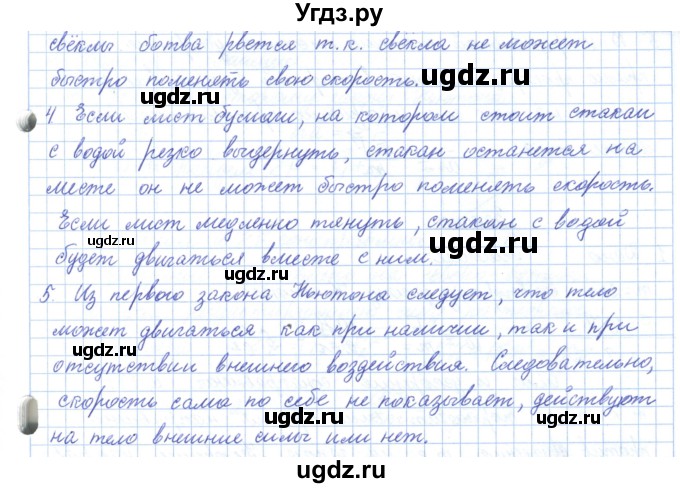 Угдз.ру
свёклы ботва рвется т.к. свекла не может
быстро поменять свою скорость.
4 Если лист бумаги, на котором стоит стакан
с водой резко выдернуть, стакан останется на
месте он не может быстро поменять скорость.
Если лист медленно тянуть, стакан с водой
будет двигаться вместе с ним.
5 Из первого закона Ньютона следует, что тело
может двигаться как при наличии, так и при
отсутствии внешнего воздействия. Следовательно,
скорость сама по себе не показывает, действуют
на тело внешние силы или нет.
ugdz.ru
ugdz.ru
ugdz.ru
ugdz.ru
ugdz.ru
ugdz.ru
ugdz.ru
ugdz.ru
ugdz.ru
ugdz.ru
ugdz.ru